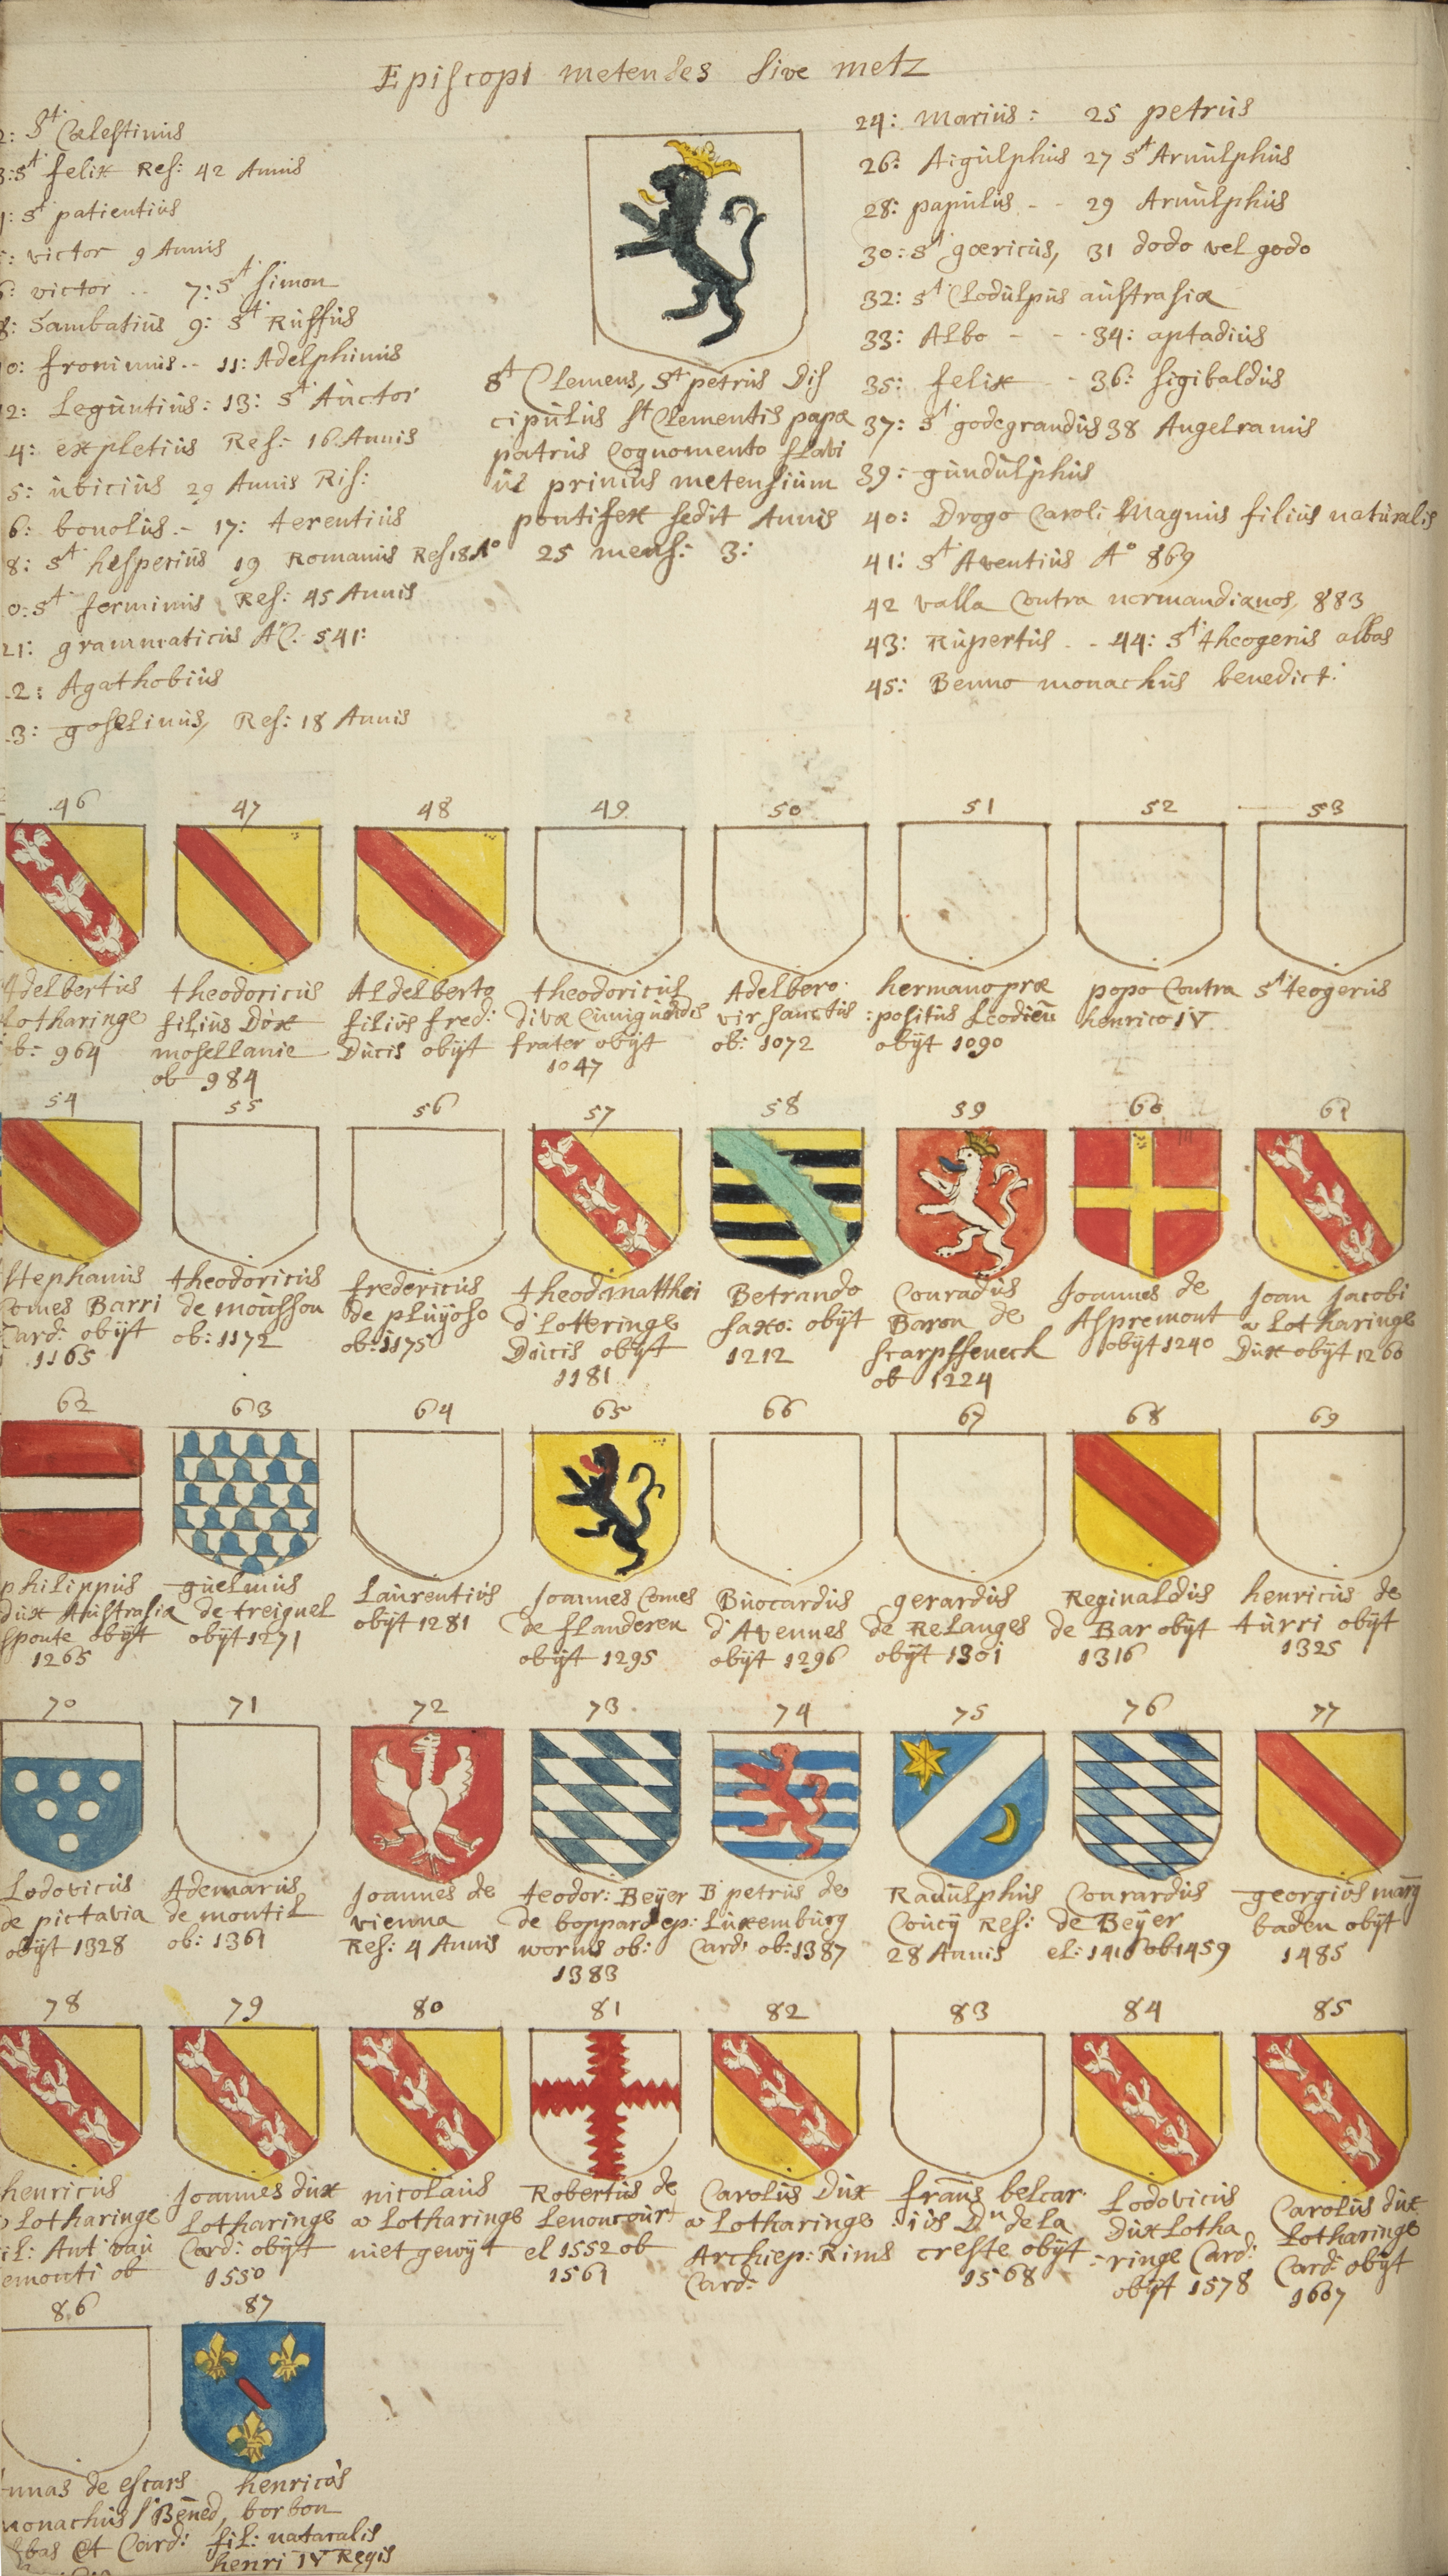 Episcopi metenses sive metz
2: St Cælestinus
3: St felix Res: 42 Annis
4: St patientius
5: victor 9 Annis
6: victor .. 7: St Simon
8: Sambatius 9: St Ruffus
0: fronimus .. 11: Adelphinus
2: Leguntius: 13: St Auctor
4: expletius Res: 16 Annis
5: ubicius 29 Annis Ris:
6: bonolus .. 17: terentius
8: St hesperius 19 Romanus Res 18 Ao
0: St ferminus Res: 45 Annis
21: grammaticus AC. 541:
2: Agathobius
3: goselinus, Res: 18 Annis
St Clemens, St petrus Dis
cipulus St Clementis papæ
patrus Cognomento flavi
us primus metensium
pontifex sedit Annis
25 mens: 3:
24: marius: 25 petrus
26: Aigulphus 27 St Arnulphus
28: papulus - - 29 Arnulphus
30: St gœricus, 31 dodo vel godo
32: St Clodulpus austrasiæ
33: Albo - - - 34: aptadius
35: felix - - 36: sigibaldus
37: St godegrandus 38 Angelramus
39: gundulphus
40: Drogo Caroli Magnus filius naturalis
41: St Aventius Ao 869
42 valla Contra normandianos, 883
43: Rupertus . . 44: St theogerus abbas
45: Benno monachus benedict:
46 47 48 49 50 51 52 53
Adelbertus
Lotharinge
ob: 964
theodoricus
filius Dux
mosellanie
ob 984
Aldelberto
filius fred:
Ducis obijt
theodoricus
divæ Cunigundis
frater obijt
1047
Adelbero
vir sanctus
ob: 1072
hermano præ
:positus Leodien
obijt 1090
popo Contra
henrico IV
St teogerus
54 55 56 57 58 59 60 61
Stephanus
Comes Barri
Card: obijt
1165
theodoricus
de mousson
ob: 1172
fredericus
de pluyoso
ob: 1175
theod matthei
d'Lotteringe
Ducis obijt
1181
Betrando
saxo: obijt
1212
Conradus
Baron de
scarpffeneck
ob 1224
Joannes de
Aspremont
obijt 1240
Joan Jacobi
a Lotharinge
Dux obijt 1260
62 63 64 65 66 67 68 69
philippus
dux Austrasiæ
sponte obijt
1265
guelmus
de treignel
obijt 1271
Laurentius
obijt 1281
Joannes Comes
de flanderen
obijt 1295
Buocardus
d'Avennes
obijt 1296
gerardus
de Relanges
obijt 1301
Reginaldus
de Bar obijt
1316
henricus de
turri obijt
1325
70 71 72 73 74 75 76 77
Lodovicus
de pictavia
obijt 1328
Ademarus
de montil
ob: 1361
Joannes de
vienna
Res: 4 Annis
teodor: Beijer
de boppard ep:
worms ob:
1383
B petrus de
Luxemburg
Card: ob: 1387
Radulphus
Coucij Res:
28 Annis
Conrardus
de Beijer
el: 1416 ob 1459
georgius marg
baden obijt
1485
78 79 80 81 82 83 84 85
henricus
Lotharinge
il: Ant vau
emonti ob
Joannes dux
Lotharinge
Card: obijt
1550
nicolaus
a Lotharinge
niet gewijt
Robertus de
Lenoncourt
el 1552 ob
1561
Carolus Dux
a Lotharinge
Archiep: Rims
Card:
frans belcar
:ius Dn de la
creste obijt
1568
Lodovicus
Dux Lotha
-ringe Card:
obijt 1578
Carolus dux
Lotharinge
Card: obijt
1607
86 87
nnas de escars
monachus S Bened,
bas et Card:
henricus
borbon
fil: naturalis
henri IV Regis